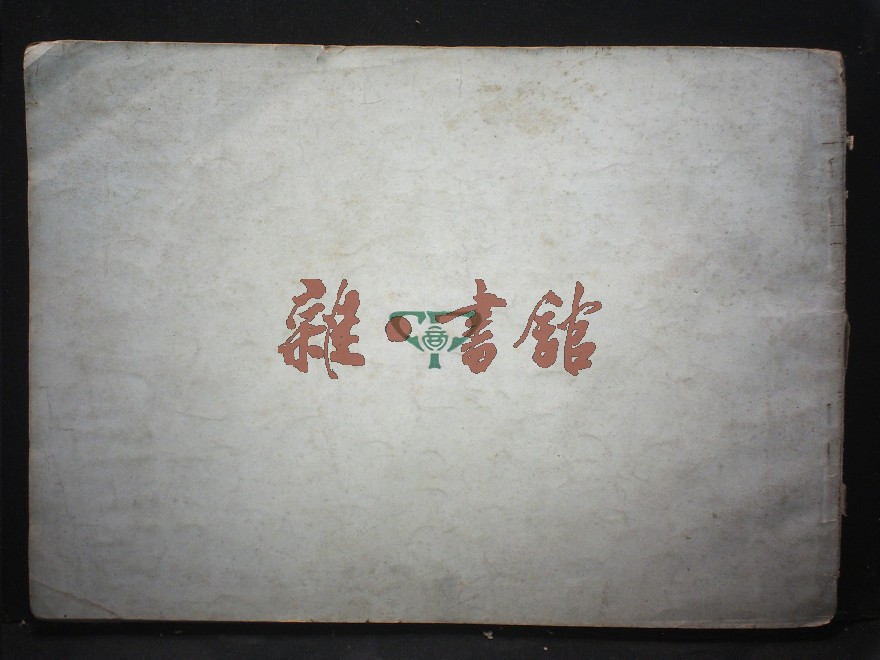 雜·書館
商